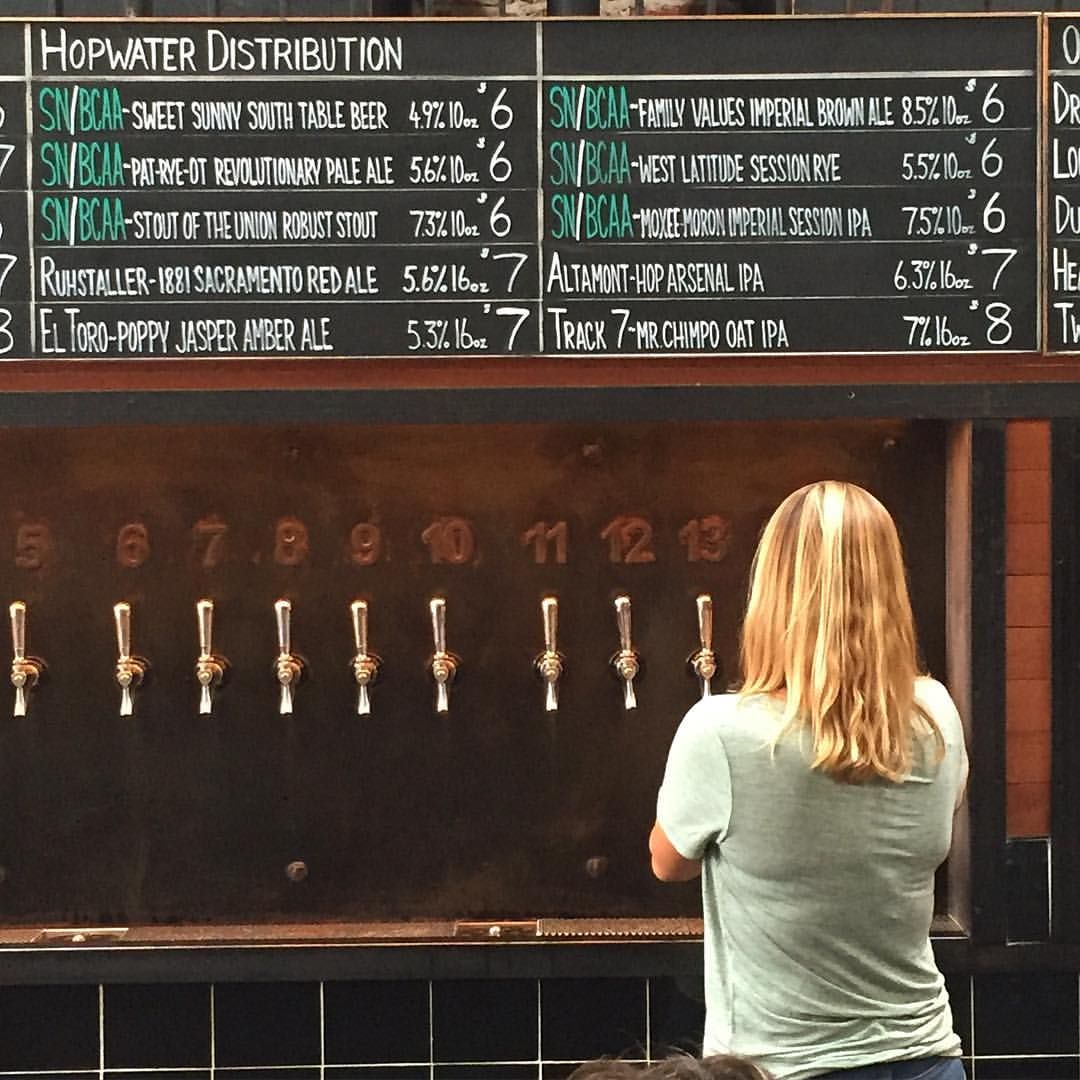 HOPWATER DISTRIBUTION
SN/BCAA-SWEET SUNNY SOUTH TABLE BEER 4.9% 10oz $6
SN/BCAA-PAT-RYE-OT REVOLUTIONARY PALE ALE 5.6% 10oz $6
SN/BCAA-STOUT OF THE UNION ROBUST STOUT 7.3% 10oz $6
RUHSTALLER-1881 SACRAMENTO RED ALE 5.6% 16oz $7
EL TORO-POPPY JASPER AMBER ALE 5.3% 16oz $7
SN/BCAA-FAMILY VALUES IMPERIAL BROWN ALE 8.5% 10oz $6
SN/BCAA-WEST LATITUDE SESSION RYE 5.5% 10oz $6
SN/BCAA-MOXEE-MORON IMPERIAL SESSION IPA 7.5% 10oz $6
ALTAMONT-HOP ARSENAL IPA 6.3% 16oz $7
TRACK 7-MR.CHIMPO OAT IPA 7% 16oz $8
5 6 7 8 9 10 11 12 13